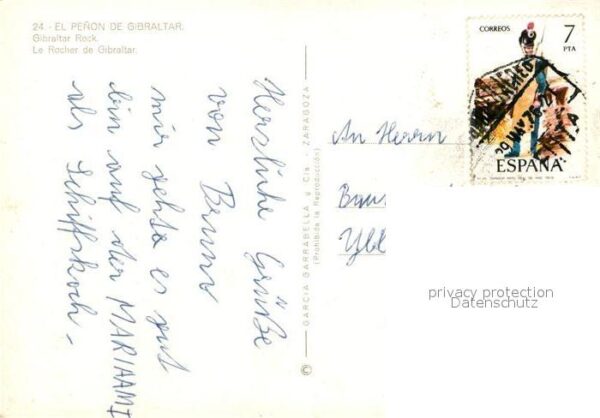 24 - EL PEÑON DE GIBRALTAR.
Gibraltar Rock.
Le Rocher de Gibraltar.
Herzliche Grüße
von Bruno
mir gehts es gut
bin auf der MARIAAMI
als Schiffskoch -
© GARCIA GARRABELLA y Cia. - ZARAGOZA
(Prohibida la Reproducción)
CORREOS
7
PTA
ESPAÑA
An Herrn
privacy protection
Datenschutz